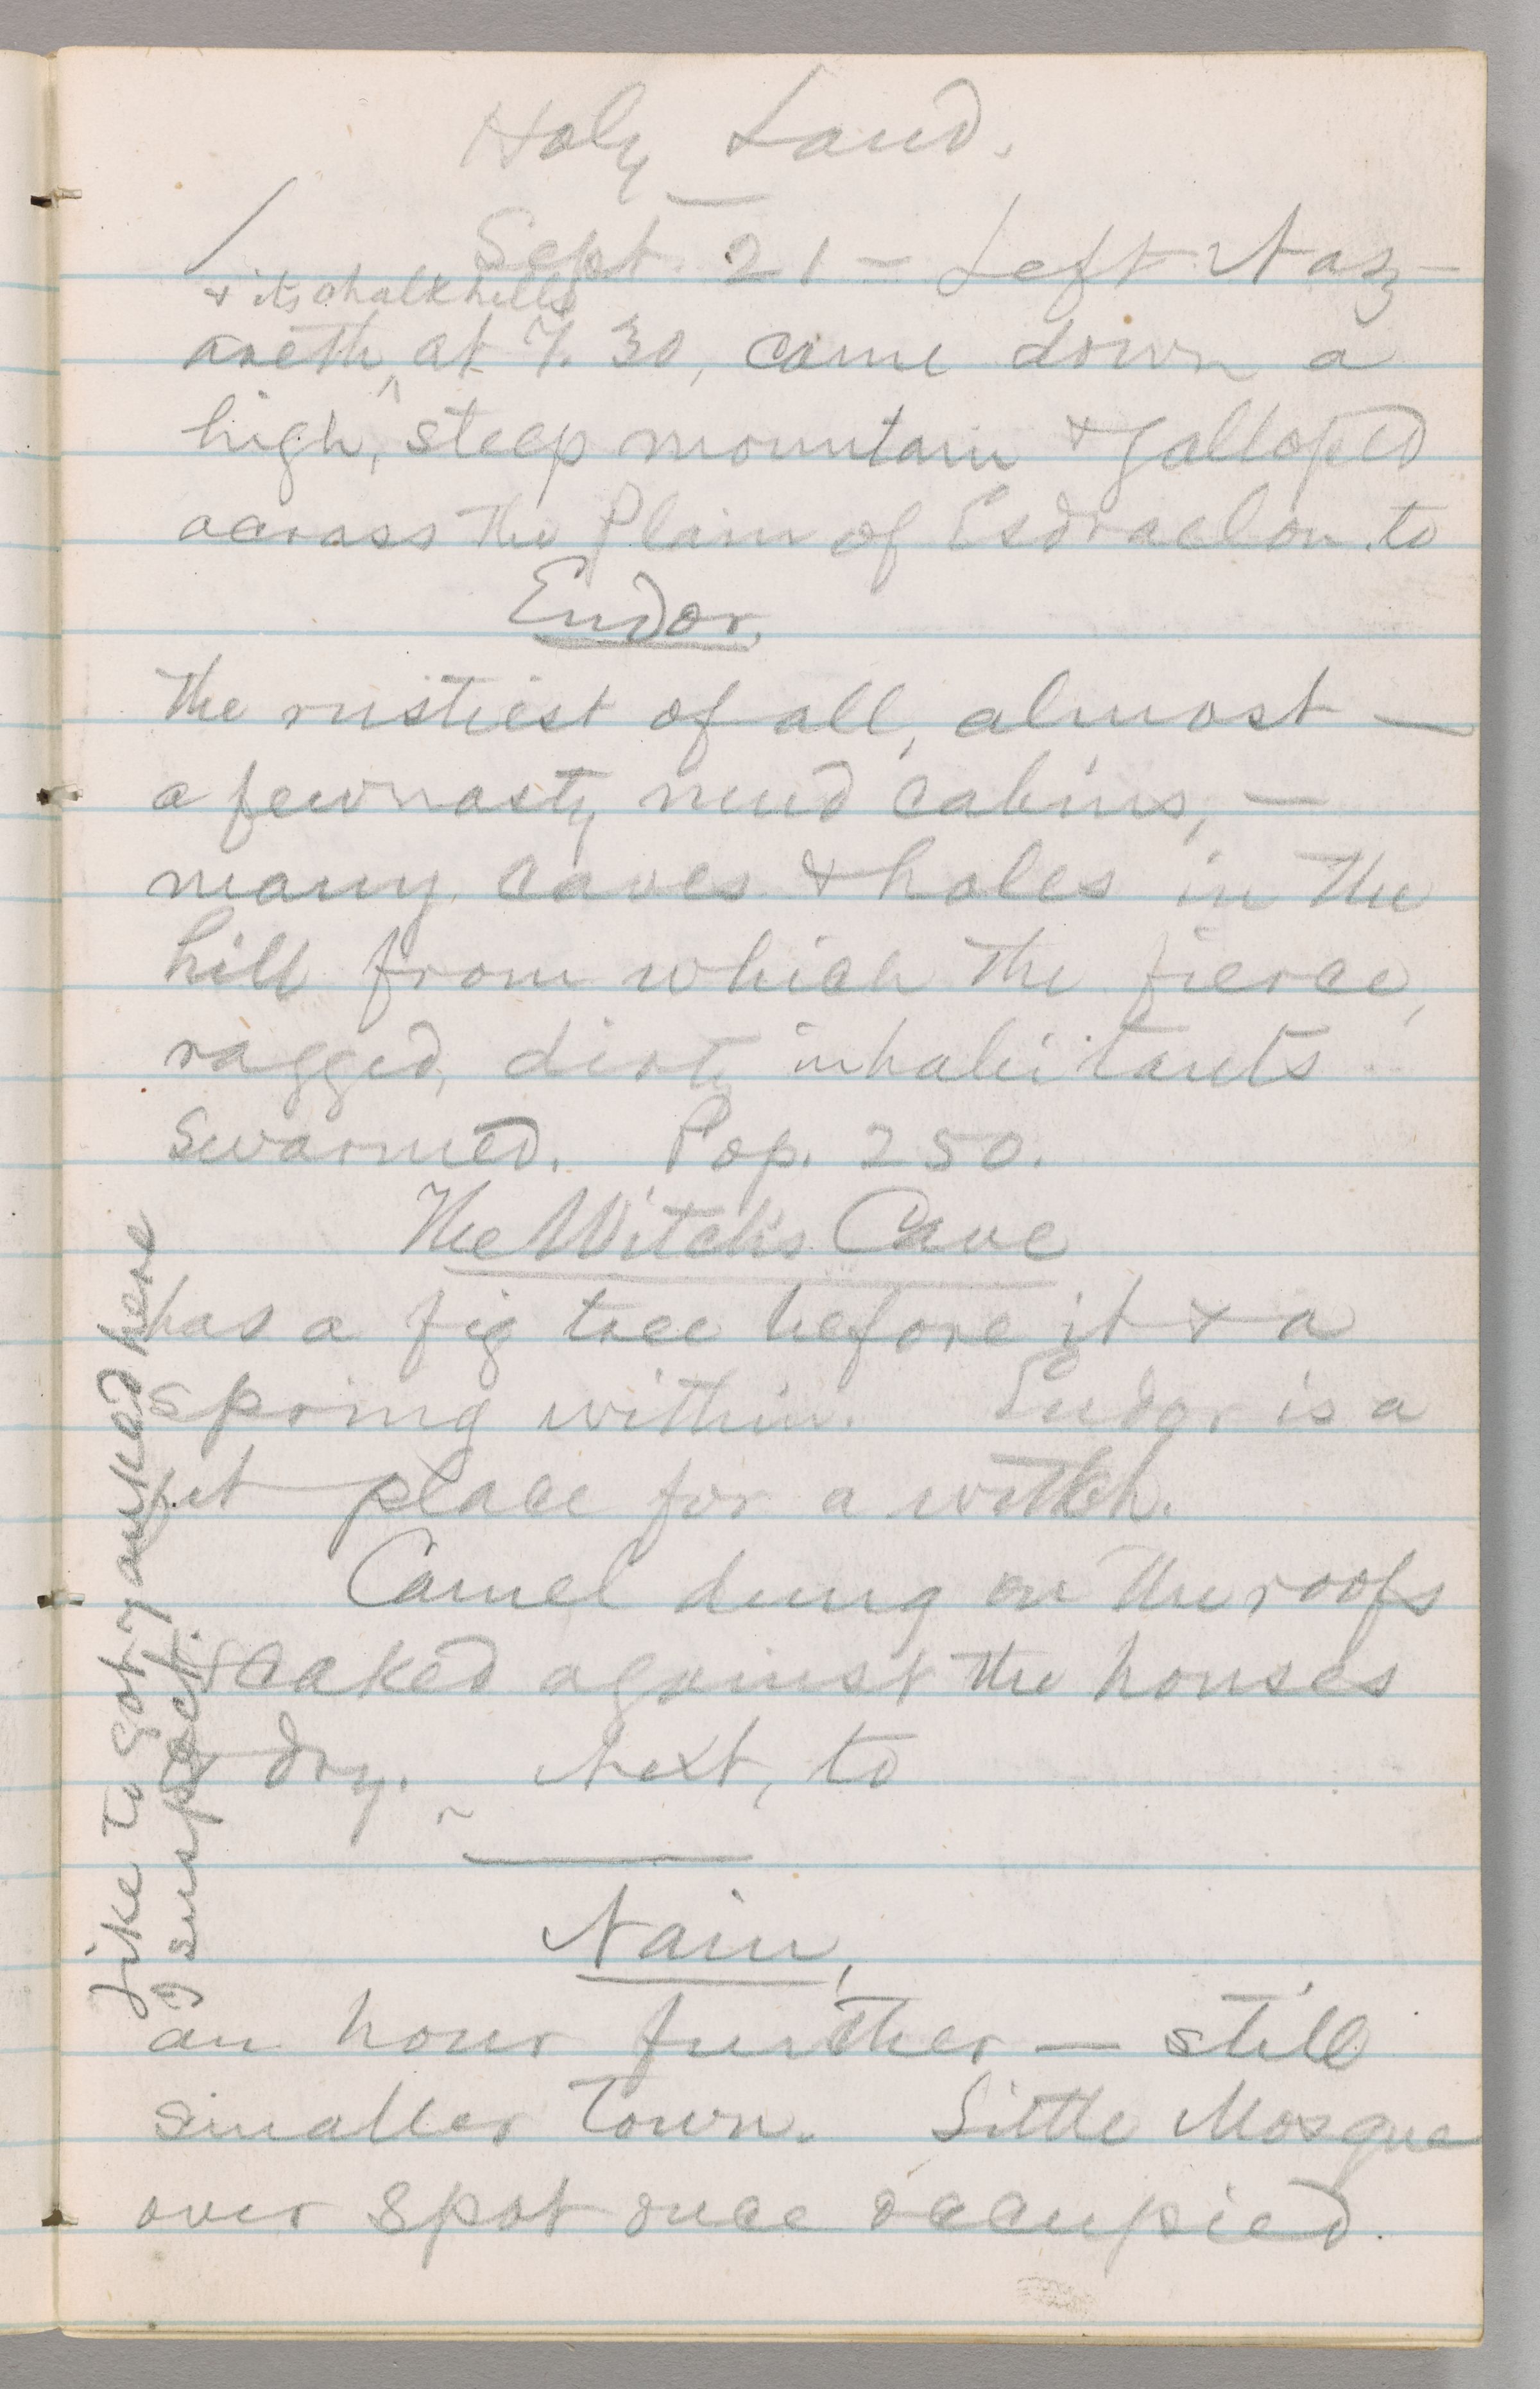 Holy Land.
Sept. 21 — Left Naz-
& its chalk hills
areth ^ at 7.30, came down a
high, steep mountain & galloped
across the Plain of Esdraelon to
Endor,
the rustiest of all, almost —
a few nasty mud cabins, —
many caves & holes in the
hill from which the fierce,
ragged, dirty inhabitants
swarmed. Pop. 250.
The Witch's Cave
has a fig tree before it & a
spring within. Endor is a
fit place for a witch.
Camel dung on the roofs
& caked against the houses
to dry. Next, to
Nain,
an hour further — still
smaller town. Little Mosque
over spot once occupied
Like to got yanked here
I suspect.